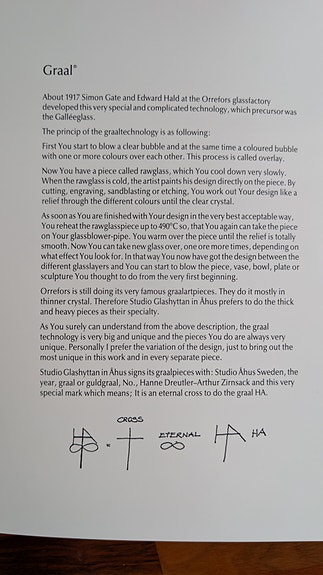 Graal®
About 1917 Simon Gate and Edward Hald at the Orrefors glassfactory
developed this very special and complicated technology, which precursor was
the Galléeglass.
The princip of the graaltechnology is as following:
First You start to blow a clear bubble and at the same time a coloured bubble
with one or more colours over each other. This process is called overlay.
Now You have a piece called rawglass, which You cool down very slowly.
When the rawglass is cold, the artist paints his design directly on the piece. By
cutting, engraving, sandblasting or etching, You work out Your design like a
relief through the different colours until the clear crystal.
As soon as You are finished with Your design in the very best acceptable way,
You reheat the rawglasspiece up to 490°C so, that You again can take the piece
on Your glassblower-pipe. You warm over the piece until the relief is totally
smooth. Now You can take new glass over, one ore more times, depending on
what effect You look for. In that way You now have got the design between the
different glasslayers and You can start to blow the piece, vase, bowl, plate or
sculpture You thought to do from the very first beginning.
Orrefors is still doing its very famous graalartpieces. They do it mostly in
thinner crystal. Therefore Studio Glashyttan in Åhus prefers to do the thick
and heavy pieces as their specialty.
As You surely can understand from the above description, the graal
technology is very big and unique and the pieces You do are always very
unique. Personally I prefer the variation of the design, just to bring out the
most unique in this work and in every separate piece.
Studio Glashyttan in Åhus signs its graalpieces with: Studio Åhus Sweden, the
year, graal or guldgraal, No., Hanne Dreutler–Arthur Zirnsack and this very
special mark which means; It is an eternal cross to do the graal HA.
CROSS
= ETERNAL ∞ HA HA